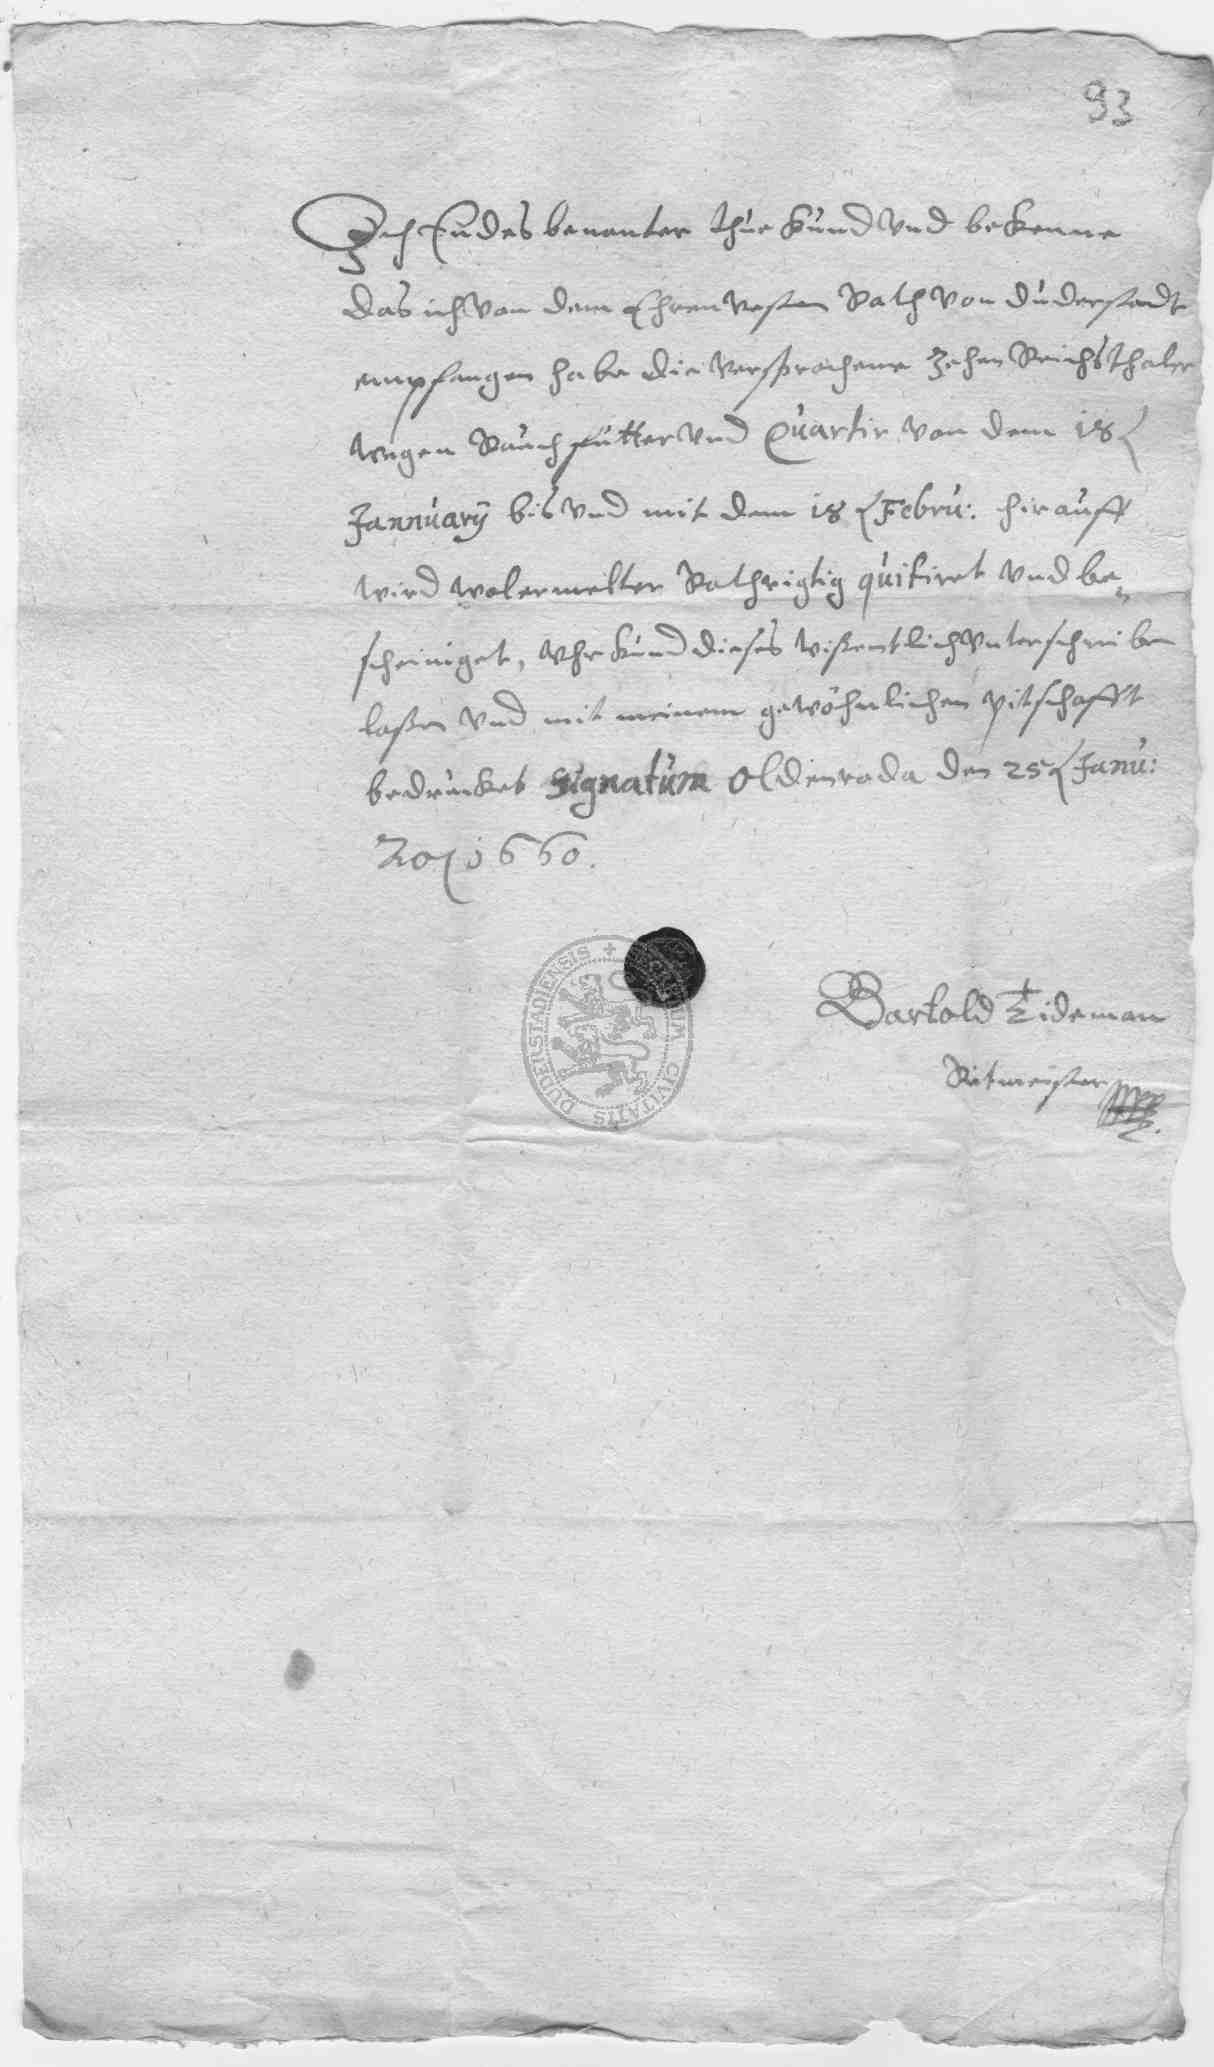 93
Ich Endes benanter thue kund vnd bekenne
das ich von dem Ehrenvesten Rath von Duderstadt
empfangen habe die versprochene Zehen Reichsthaler
wegen Rauchfutter vnd Quartir von dem 18
Jannuarÿ bis vnd mit dem 18 Febru: hirauff
wird wolermelter Rath rigtig quitiret vnd be-
scheiniget, Vhrkund dieses wißentlich vnterschreiben
laßen vnd mit meinem gewöhnlichen pitschafft
bedrucket Signatum Oldenroda den 25 Janu:
1660.
Bartold Tideman
Ritmeister
SIGILLUM CIVITATIS DUDERSTADIENSIS